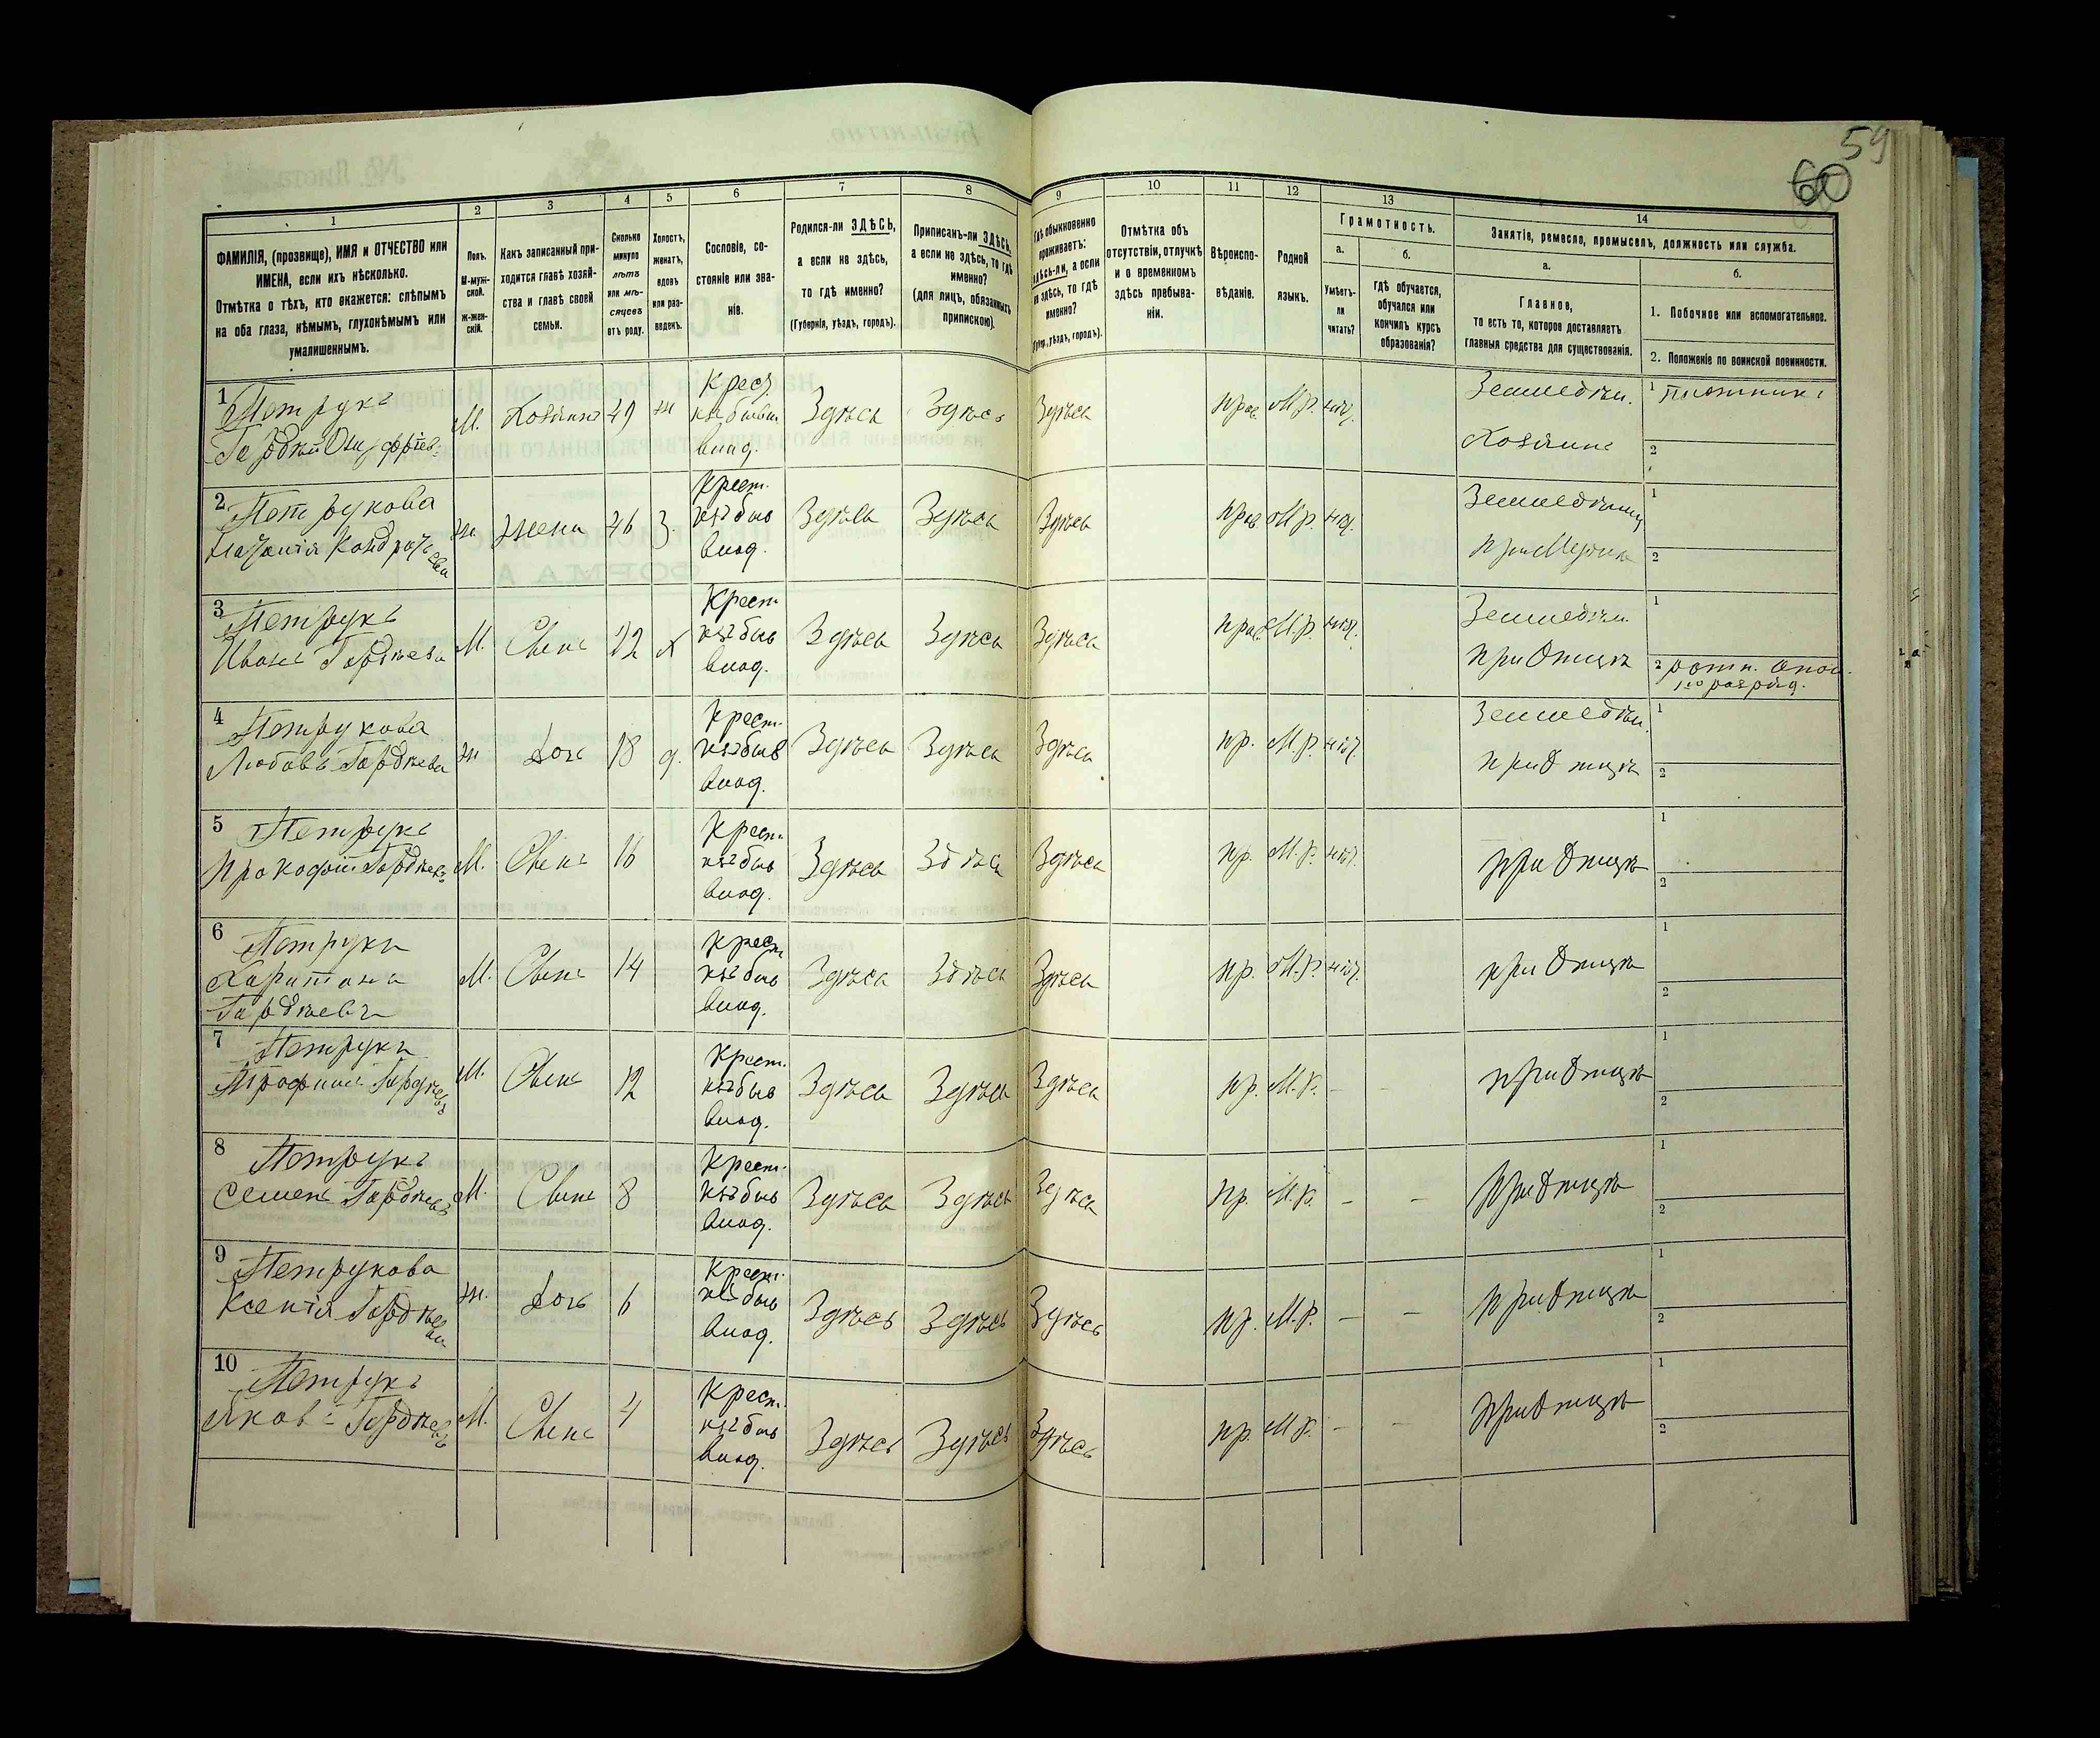 59
60
1
2
3
4
5
6
7
8
9
10
11
12
13
14
ФАМИЛІЯ, (прозвище), ИМЯ и ОТЧЕСТВО или
ИМЕНА, если ихъ нѣсколько.
Отмѣтка о тѣхъ, кто окажется: слѣпымъ
на оба глаза, нѣмымъ, глухонѣмымъ или
умалишеннымъ.
Полъ.
М-муж-
ской.
Ж-жен-
скій.
Какъ записанный при-
ходится главѣ хозяй-
ства и главѣ своей
семьи.
Сколько
минуло
лѣтъ
или мѣ-
сяцевъ
отъ роду.
Холостъ,
женатъ,
вдовъ
или раз-
веденъ.
Сословіе, со-
стояніе или зва-
ніе.
Родился-ли ЗДѢСЬ,
а если не здѣсь,
то гдѣ именно?
(Губернія, уѣздъ, городъ).
Приписанъ-ли ЗДѢСЬ,
а если не здѣсь, то гдѣ
именно?
(для лицъ, обязанныхъ
припискою).
Гдѣ обыкновенно
проживаетъ:
здѣсь-ли, а если
не здѣсь, то гдѣ
именно?
(Губер., уѣздъ, городъ).
Отмѣтка объ
отсутствіи, отлучкѣ
и о временномъ
здѣсь пребыва-
ніи.
Вѣроиспо-
вѣданіе.
Родной
языкъ.
Грамотность.
а.
Умѣетъ-
ли
читать?
б.
гдѣ обучается,
обучался или
кончилъ курсъ
образованія?
Занятіе, ремесло, промыселъ, должность или служба.
а.
Главное,
то есть то, которое доставляетъ
главныя средства для существованія.
б.
1. Побочное или вспомогательное.
2. Положеніе по воинской повинности.
1 Петрукъ
Гордѣй
М. Хозяинъ 49 ж
Крест.
Влад.
Здѣсь Здѣсь Здѣсь
прав. М.р. нѣт.
Земледѣл.
Хозяинъ
1 плотникъ
2
2 Петрукова
Ж. жена 46 З.
Крест.
къ быв
Влад.
Здѣсь Здѣсь Здѣсь
прав М.р. нѣт.
1
2
3 Петрукъ
Иванъ Гордѣевъ
М. Сынъ 22 х
Крест.
къ быв
Влад.
Здѣсь Здѣсь Здѣсь
прав. М.р. нѣт.
Земледѣл.
при Отцѣ
1
2 ратн. опол.
1го разряд.
4 Петрукова
Любовь Гордѣева
Ж Дочь 18 д.
Крест.
къ быв
Влад.
Здѣсь Здѣсь Здѣсь
пр. М.р. нѣт.
Земледѣл.
при Отцѣ
1
2
5 Петрукъ
Прокофій Гордѣевъ
М. Сынъ 16
Крест.
къ быв
Влад.
Здѣсь Здѣсь Здѣсь
пр. М.р. нѣт.
при Отцѣ
1
2
6 Петрукъ
Харитонъ
Гордѣевъ
М. Сынъ 14
Крест.
къ быв
Влад.
Здѣсь Здѣсь Здѣсь
пр. М.р. нѣт.
при Отцѣ
1
2
7 Петрукъ
Трофимъ Гордѣевъ
М. Сынъ 12
Крест.
къ быв
Влад.
Здѣсь Здѣсь Здѣсь
пр. М.р. – –
при Отцѣ
1
2
8 Петрукъ
Семенъ Гордѣевъ
М. Сынъ 8
Крест.
къ быв
Влад.
Здѣсь Здѣсь Здѣсь
пр. М.р. – –
при Отцѣ
1
2
9 Петрукова
Ксенія Гордѣева
Ж. Дочь 6
Крест.
къ быв
Влад.
Здѣсь Здѣсь Здѣсь
пр. М.р. – –
при Отцѣ
1
2
10 Петрукъ
Яковъ Гордѣевъ
М. Сынъ 4
Крест.
къ быв
Влад.
Здѣсь Здѣсь Здѣсь
пр. М.р. – –
при Отцѣ
1
2